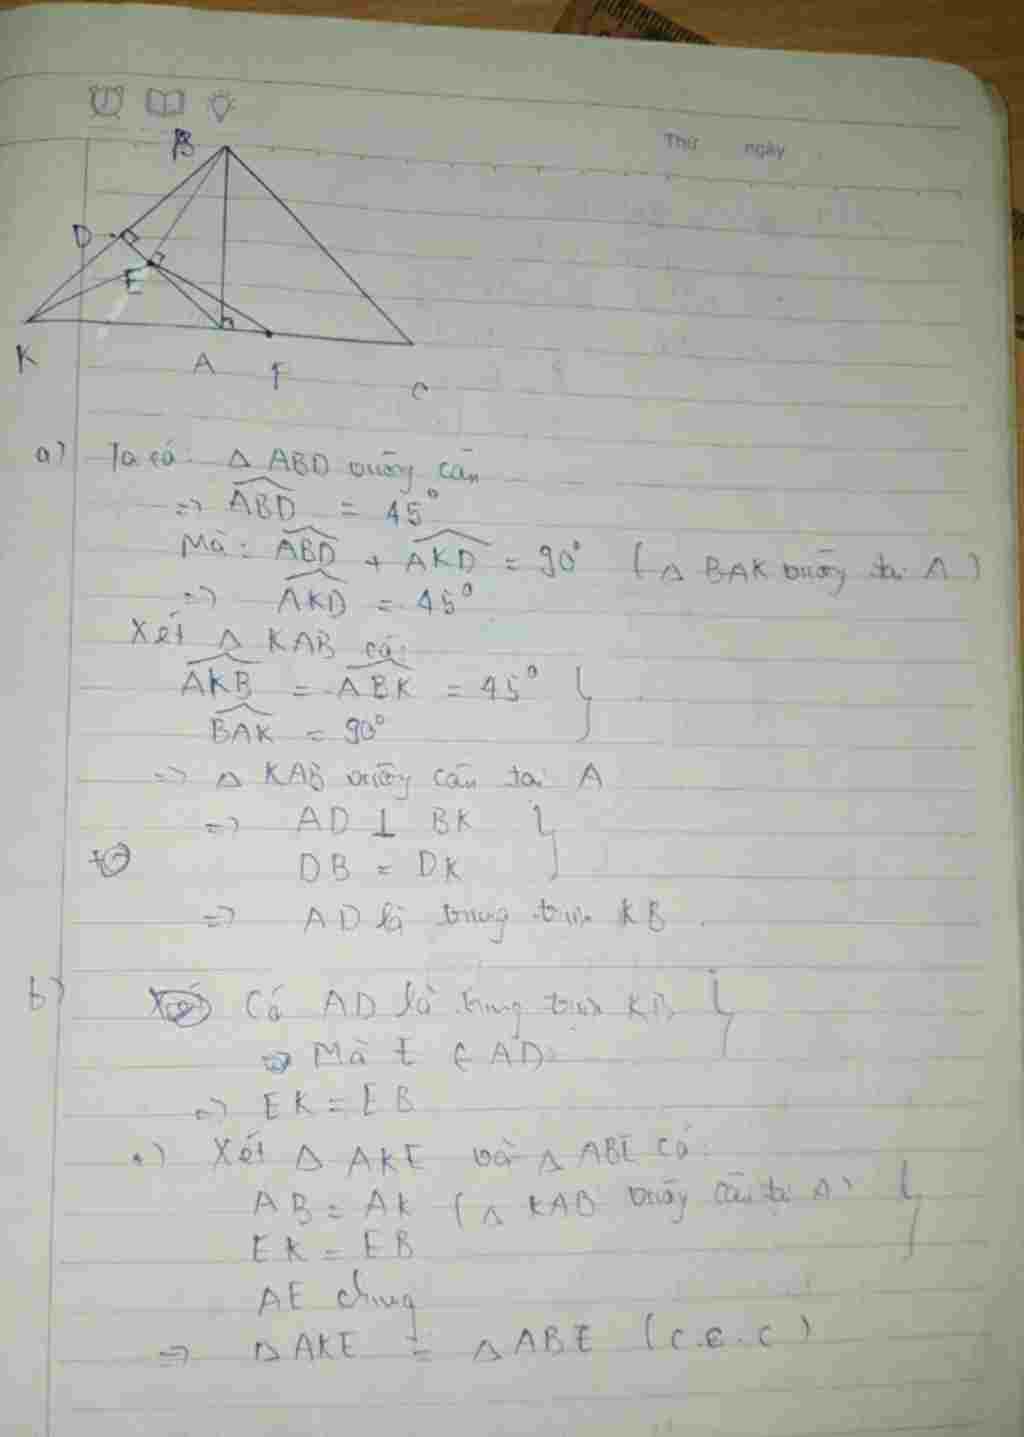 Thứ ngày
B
D
E
K
A
F
C
a) Ta có: △ ABD vuông cân
=> ABD = 45°
Mà: ABD + AKD = 90° (△ BAK vuông tại A)
=> AKD = 45°
Xét △ KAB có:
AKB = ABK = 45°
BAK = 90°
=> △ KAB vuông cân tại A
=> AD ⊥ BK
DB = DK
=> AD là trung trực KB.
b) Có AD là trung trực KB
Mà E ∈ AD
=> EK = EB
•) Xét △ AKE và △ ABE có:
AB = AK (△ KAB vuông cân tại A)
EK = EB
AE chung
=> △ AKE = △ ABE (c.c.c)